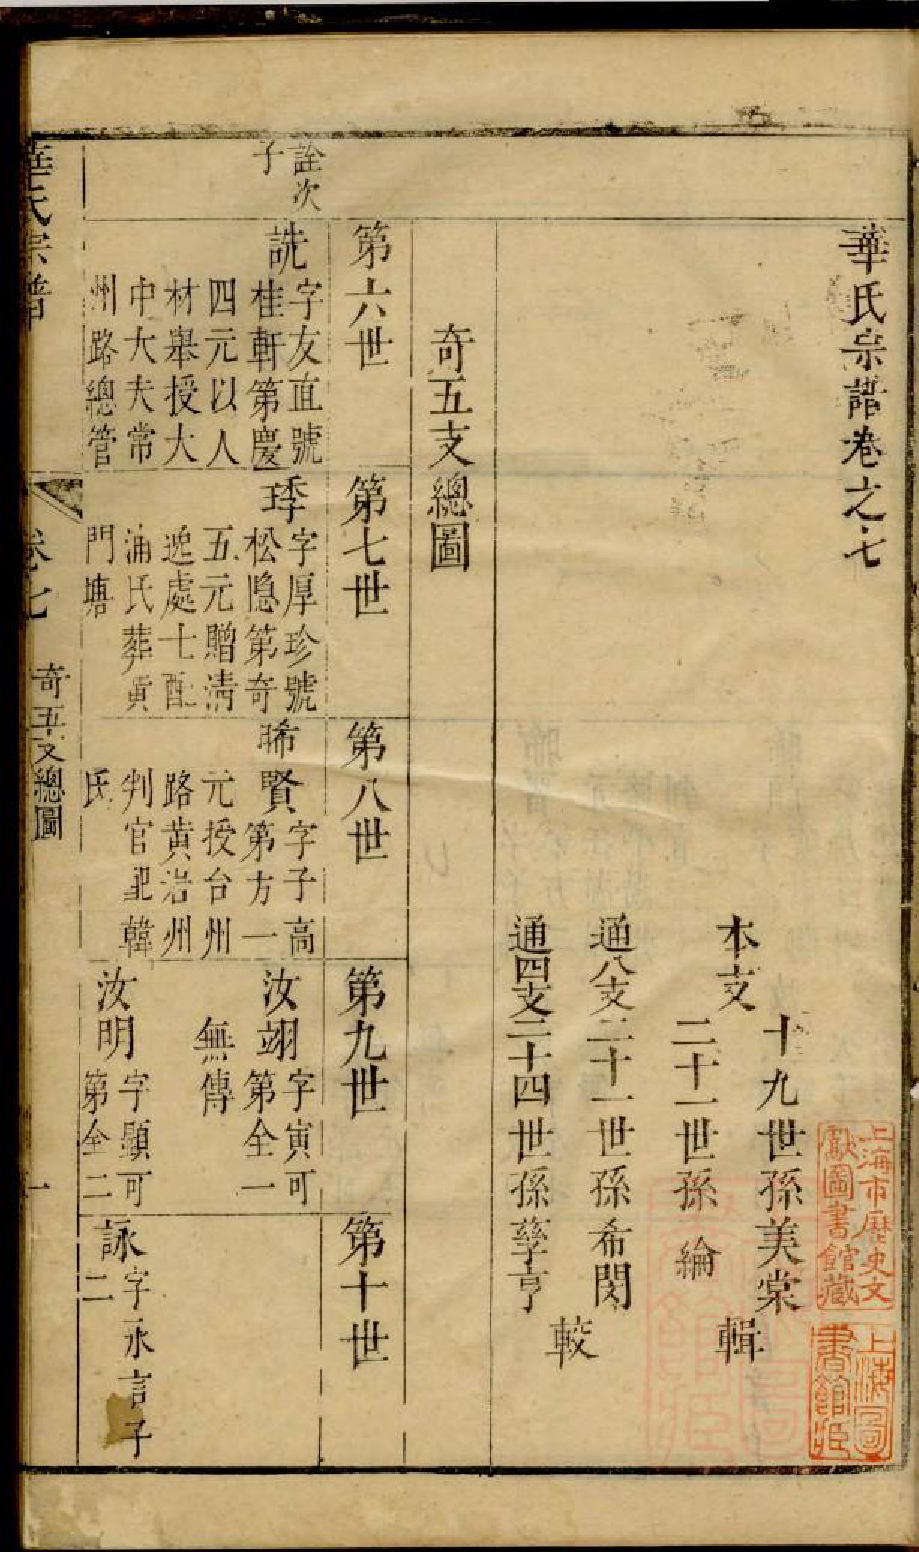 華氏宗譜卷之七
本支
十九世孫美棠
二十一世孫 綸
輯
通八支二十一世孫希閔
通四支二十四世孫孳亨
較
奇五支總圖
第六世
第七世
第八世
第九世
第十世
詮次
子
詵
字友直號
桂軒第慶
四元以人
材舉授大
中大夫常
州路總管
琜
字厚珍號
松隱第奇
五元贈清
逸處士配
浦氏葬貢
門塘
晞賢
字子高
第方一
元授台州
路黃岩州
判官配韓
氏
汝翊
字寅可
第全一
無傳
汝明
字顯可
第全二
詠
字永言子
二
華氏宗譜
卷七
奇五支總圖
一
上海市歷史文
獻圖書館藏
上海圖
書館藏